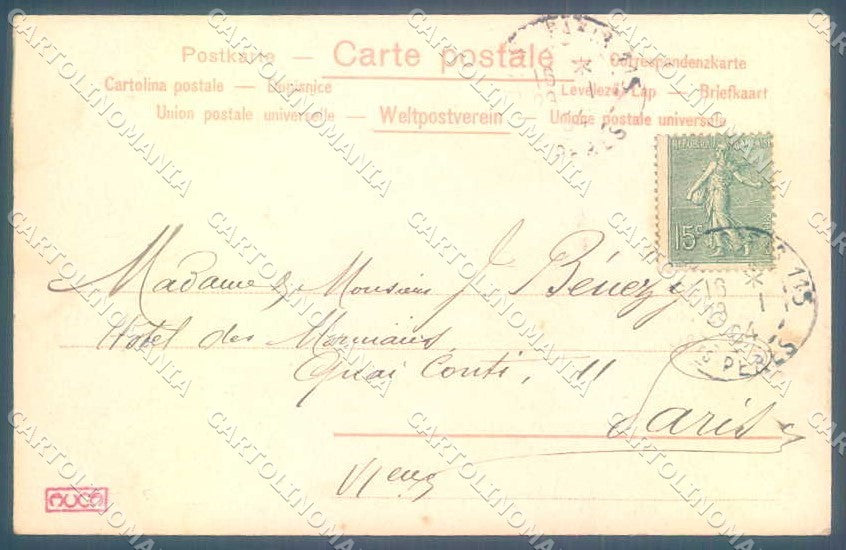 Postkarte — Carte postale — Correspondenzkarte
Cartolina postale — Dopisnice Levelezö Lap — Briefkaart
Union postale universelle — Weltpostverein — Unione postale universale
REPUBLIQUE FRANÇAISE
15c
PARIS 115
16 * 1
Madame & Monsieur J. Bénezy
Hotel des Monnaies
Quai Conti, 11
Paris
115
16 * 1
CARTOLINOMANIA